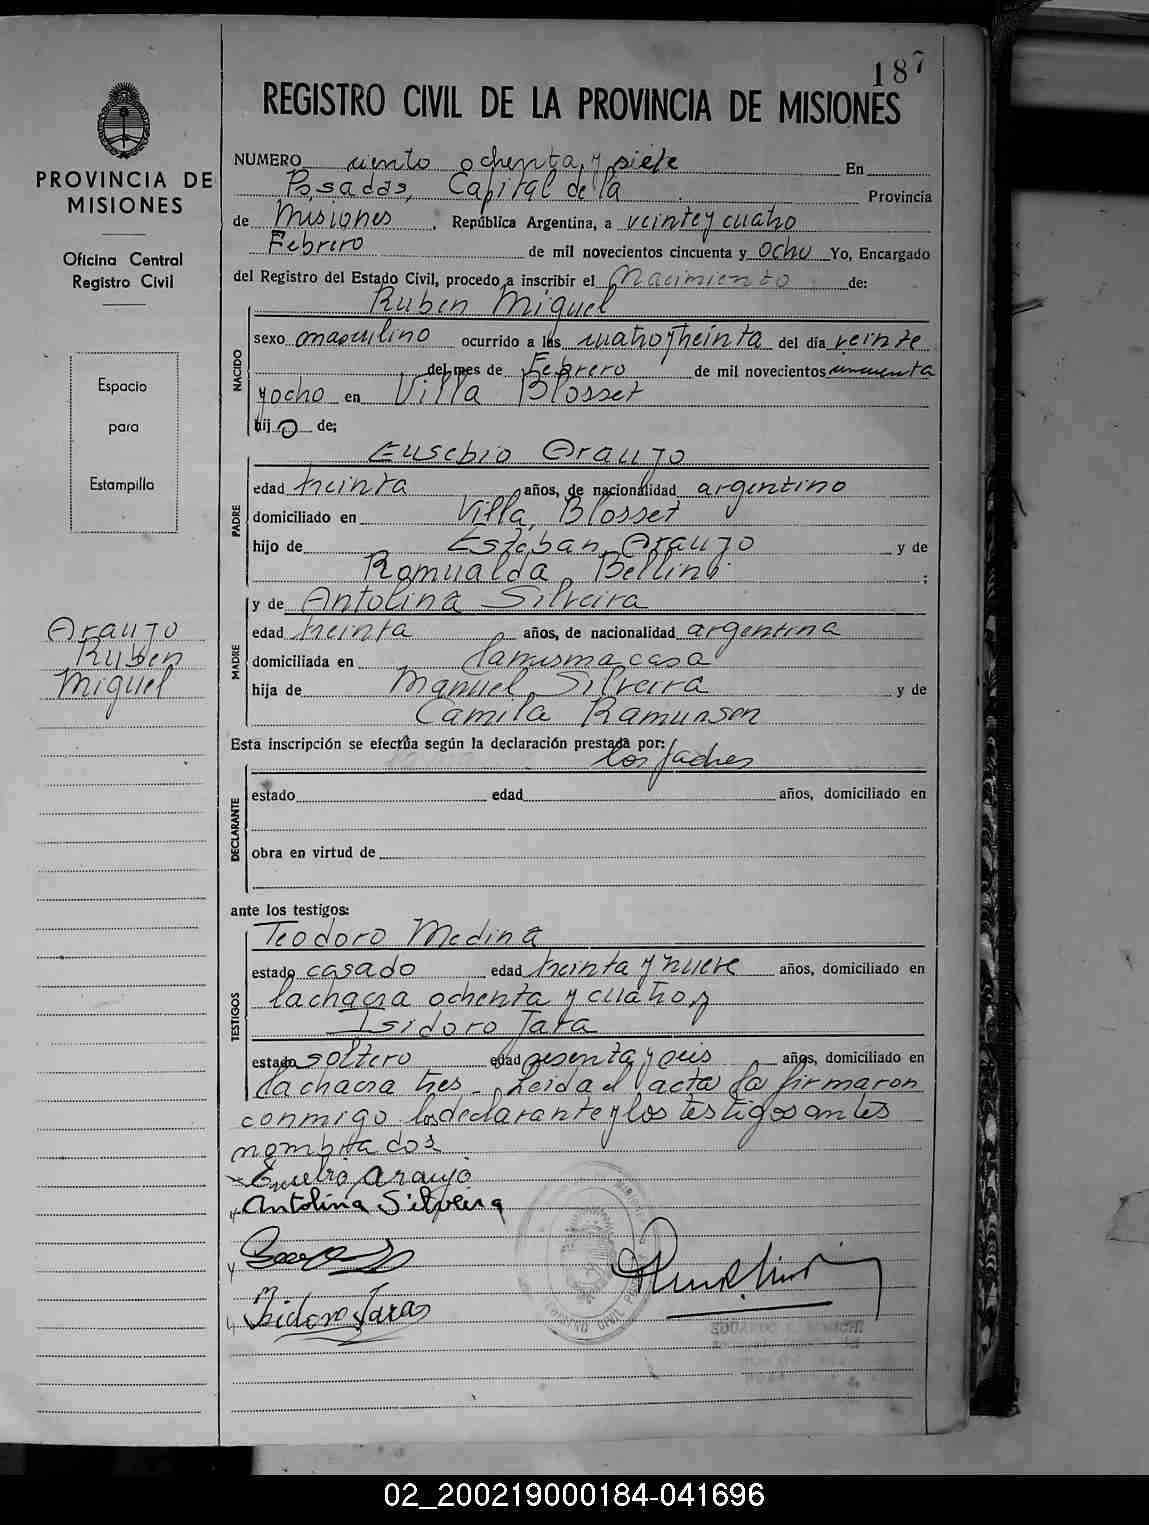 187
REGISTRO CIVIL DE LA PROVINCIA DE MISIONES
PROVINCIA DE
MISIONES
Oficina Central
Registro Civil
Espacio
para
Estampilla
Araujo
Ruben
Miguel
NUMERO ciento ochenta y siete En
Posadas, Capital de la Provincia
de Misiones, República Argentina, a veinte y cuatro
Febrero de mil novecientos cincuenta y ocho Yo, Encargado
del Registro del Estado Civil, procedo a inscribir el Nacimiento de:
Ruben Miguel
NACIDO
sexo masculino ocurrido a las cuatro y treinta del día veinte
del mes de Febrero de mil novecientos cincuenta
y ocho en Villa Blosset
hijo de:
Eusebio Araujo
PADRE
edad treinta años, de nacionalidad argentino
domiciliado en Villa Blosset
hijo de Esteban Araujo y de
Romualda Bellino ;
y de Antolina Silveira
MADRE
edad treinta años, de nacionalidad argentina
domiciliada en la misma casa
hija de Manuel Silveira y de
Camila Ramunson
Esta inscripción se efectúa según la declaración prestada por:
los padres
DECLARANTE
estado edad años, domiciliado en
obra en virtud de
ante los testigos:
Teodoro Medina
TESTIGOS
estado casado edad treinta y nueve años, domiciliado en
la chacra ochenta y cuatro y
Isidoro Jara
estado soltero edad sesenta y seis años, domiciliado en
la chacra tres. Leida el acta la firmaron
conmigo los declarante y los testigos antes
nombrados
Eusebio Araujo
Antolina Silveira
Isidoro Jaras
02_200219000184-041696